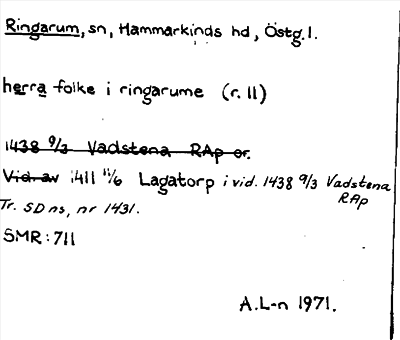 Ringarum, sn, Hammarkinds hd, Östg.l.
herra folke i ringarume (r. 11)
1438 9/3 Vadstena RAp or.
Vid. av 1411 11/6 Lagatorp i vid. 1438 9/3 Vadstena RAp
Tr. SD ns, nr 1431.
SMR: 711
A.L-n 1971.